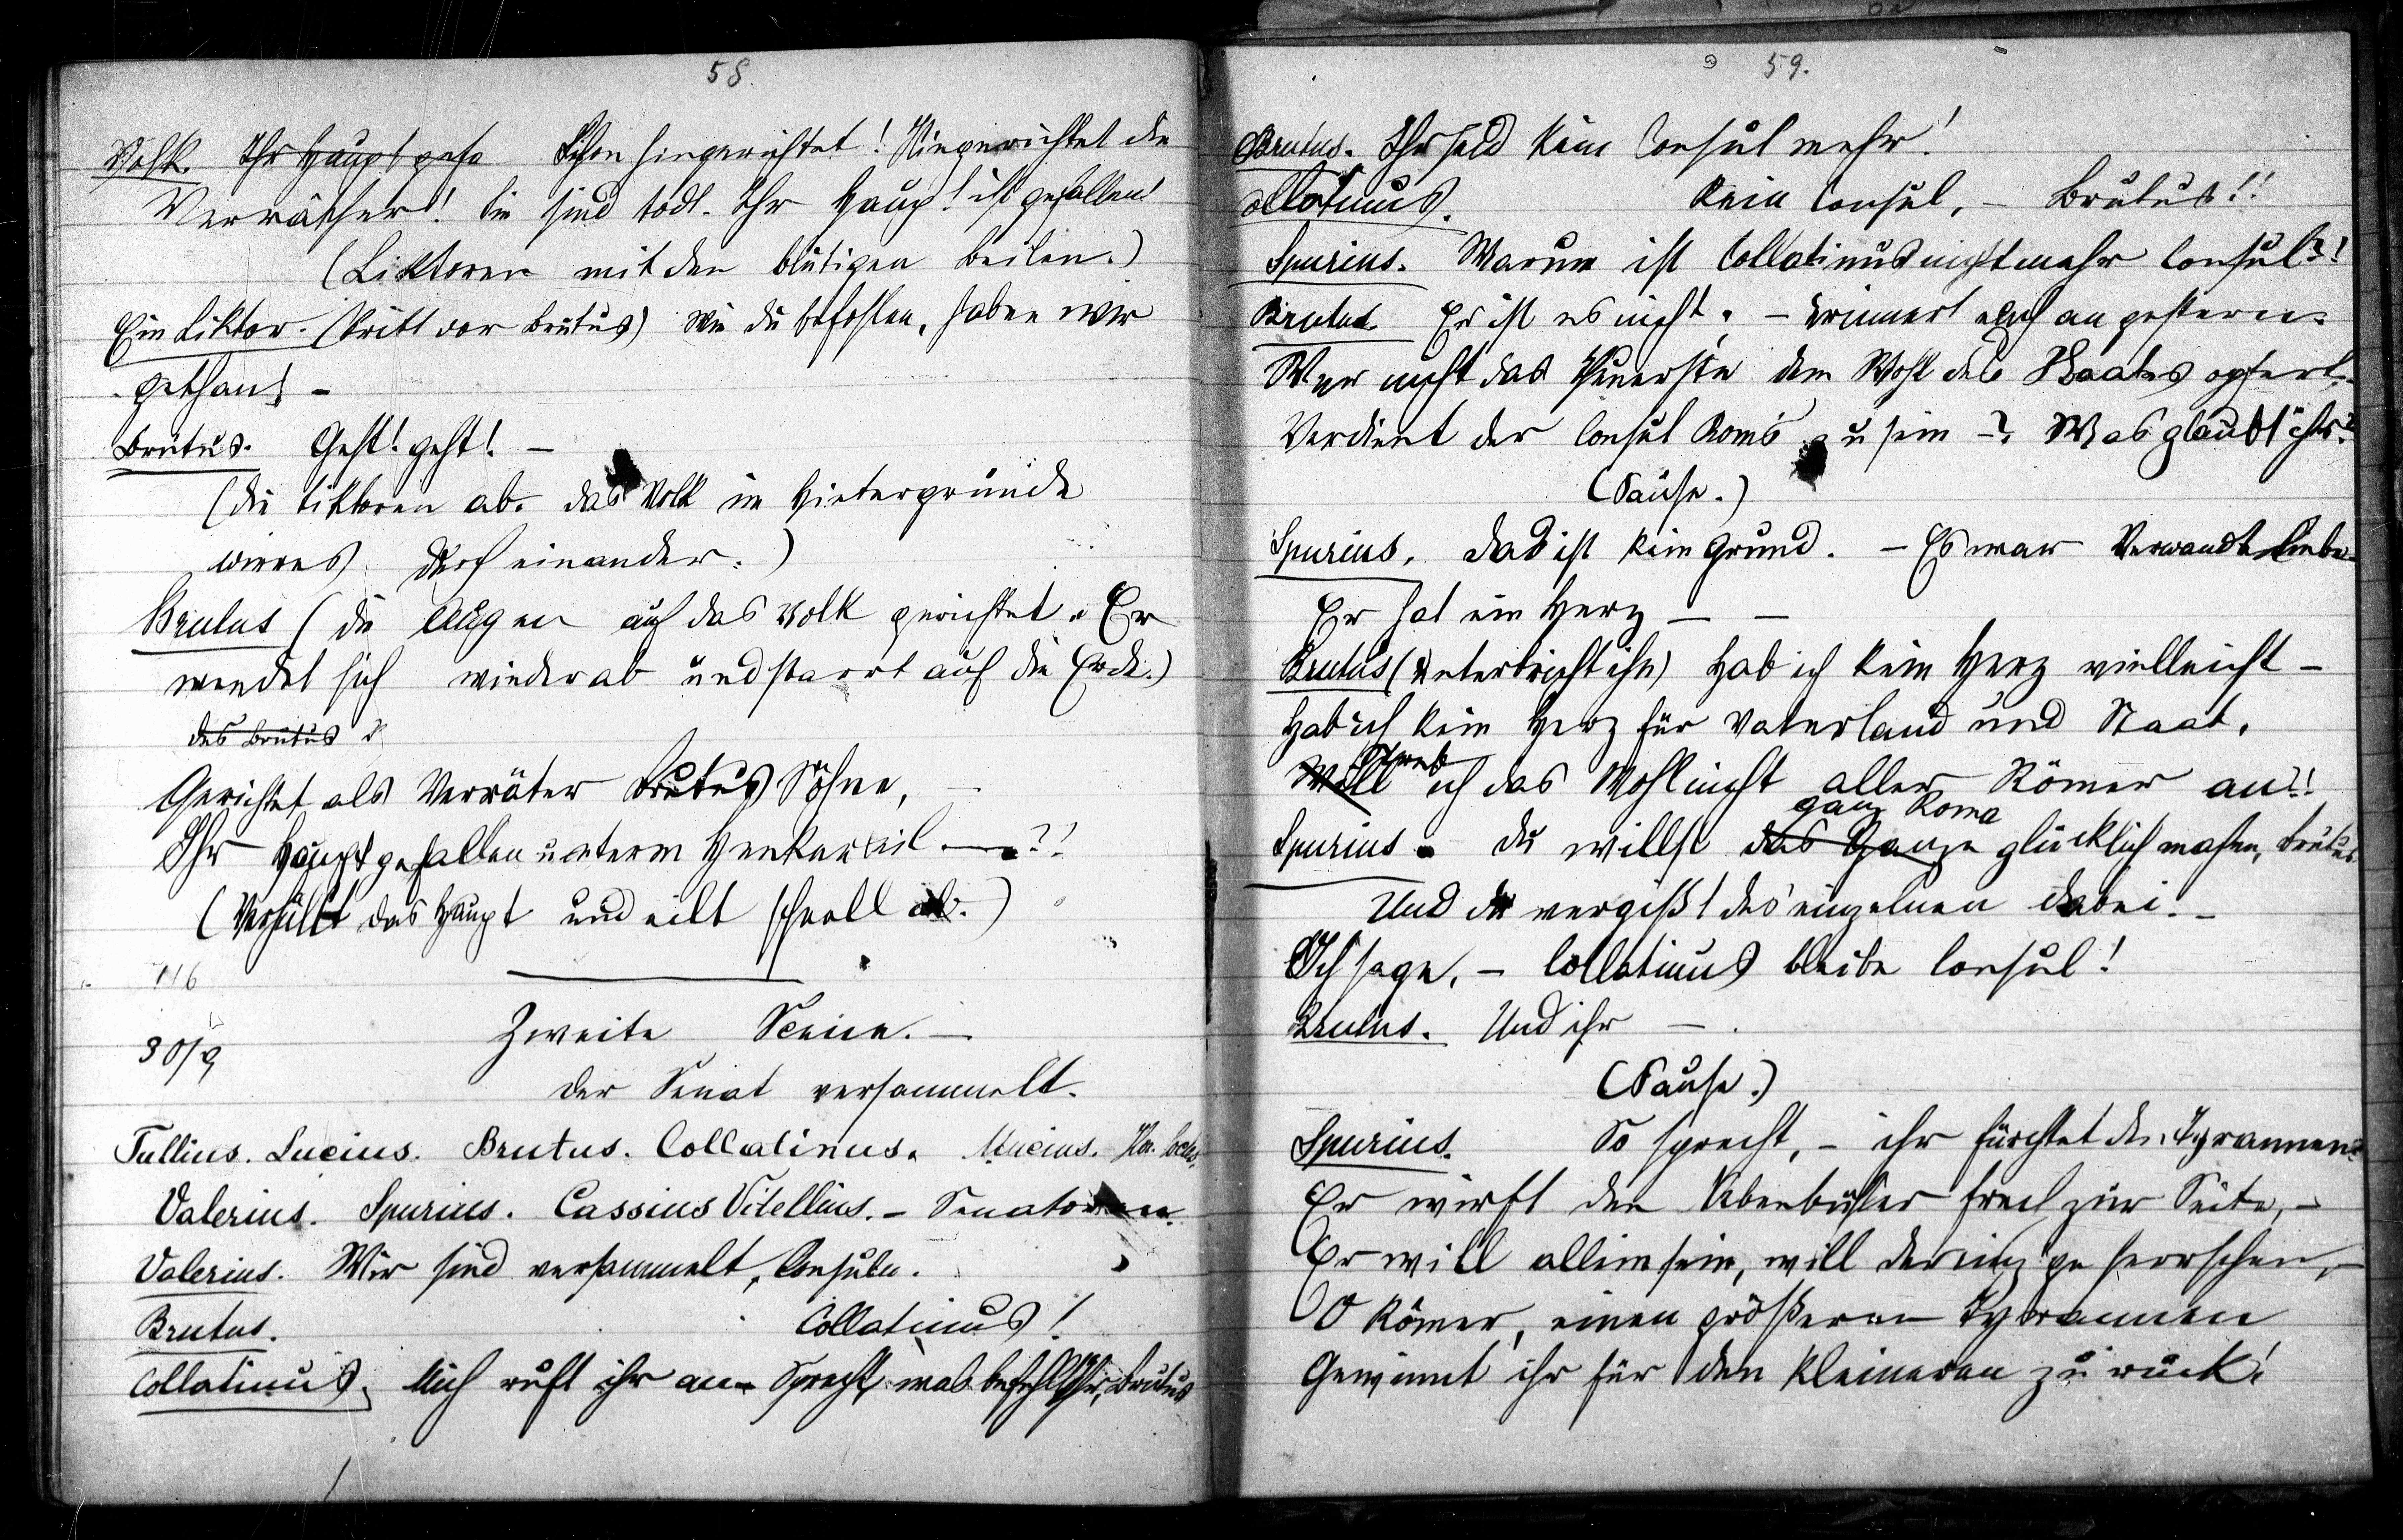 58.
Volk. Ihr Haupt gefa Schon hingerichtet! Hingerichtet die
Verräther! Sie sind todt. Ihr Haupt ist gefallen!
(Liktoren mit den blutigen Beilen.)
Ein Liktor. (tritt vor Brutus) Wie du befohlen, haben wir
gethan! -
Brutus. Geht! geht! -
(Die Liktoren ab. Das Volk im Hintergrunde
wirres Durcheinander.)
Brutus (die Augen auf das Volk gerichtet. Er
wendet sich wieder ab und starrt auf die Erde.)
des Brutus
Gerichtet als Verräter Brutus Söhne, -
Ihr Haupt gefallen unterm Henkerbeil -??
(Verhüllt das Haupt und eilt schnell ab.)
30/9
Zweite Scene. -
Der Senat versammelt.
Tullius. Lucius. Brutus. Collatinus. Mucius. Hor. Cocles.
Valerius. Spurius. Cassius Vitellius. - Senatoren.
Valerius. Wir sind versammelt, Consuln.
Brutus. Collatinus!
Collatinus. Mich ruft ihr an. Sprecht, was befehlt ihr, Brutus
59.
Brutus. Ihr seid kein Consul mehr!
ollatinus. Kein Consul, - Brutus!!
Spurius. Warum ist Collatinus nicht mehr Consul?!
Brutus. Er ist es nicht. - Erinnert euch an gestern.
Wer nicht das Theuerste dem Wohl des Staates opfert,
Verdient der Consul Roms zu sein -? Was glaubt ihr?
(Pause.)
Spurius. Das ist kein Grund. - Es war Verwandtenliebe
Er hat ein Herz - -
Brutus (unterbricht ihn) Hab ich kein Herz vielleicht -
Hab ich kein Herz für Vaterland und Staat.
Streb
Will ich das Wohl nicht aller Römer an?!
ganz Roma
Spurius. Du willst das Ganze glücklich machen, Brutus
Und du vergißt des einzelnen dabei. -
Ich sage, - Collatinus bleibe Consul!
Brutus. Und ihr -
(Pause.)
Spurius. So sprecht, - ihr fürchtet den Tyrannen?
Er wirft den Nebenbuhler frech zur Seite, -
Er will allein sein, will der einzige herrschen, -
O Römer, einen größeren Tyrannen
Gewinnt ihr für den kleineren zurück!